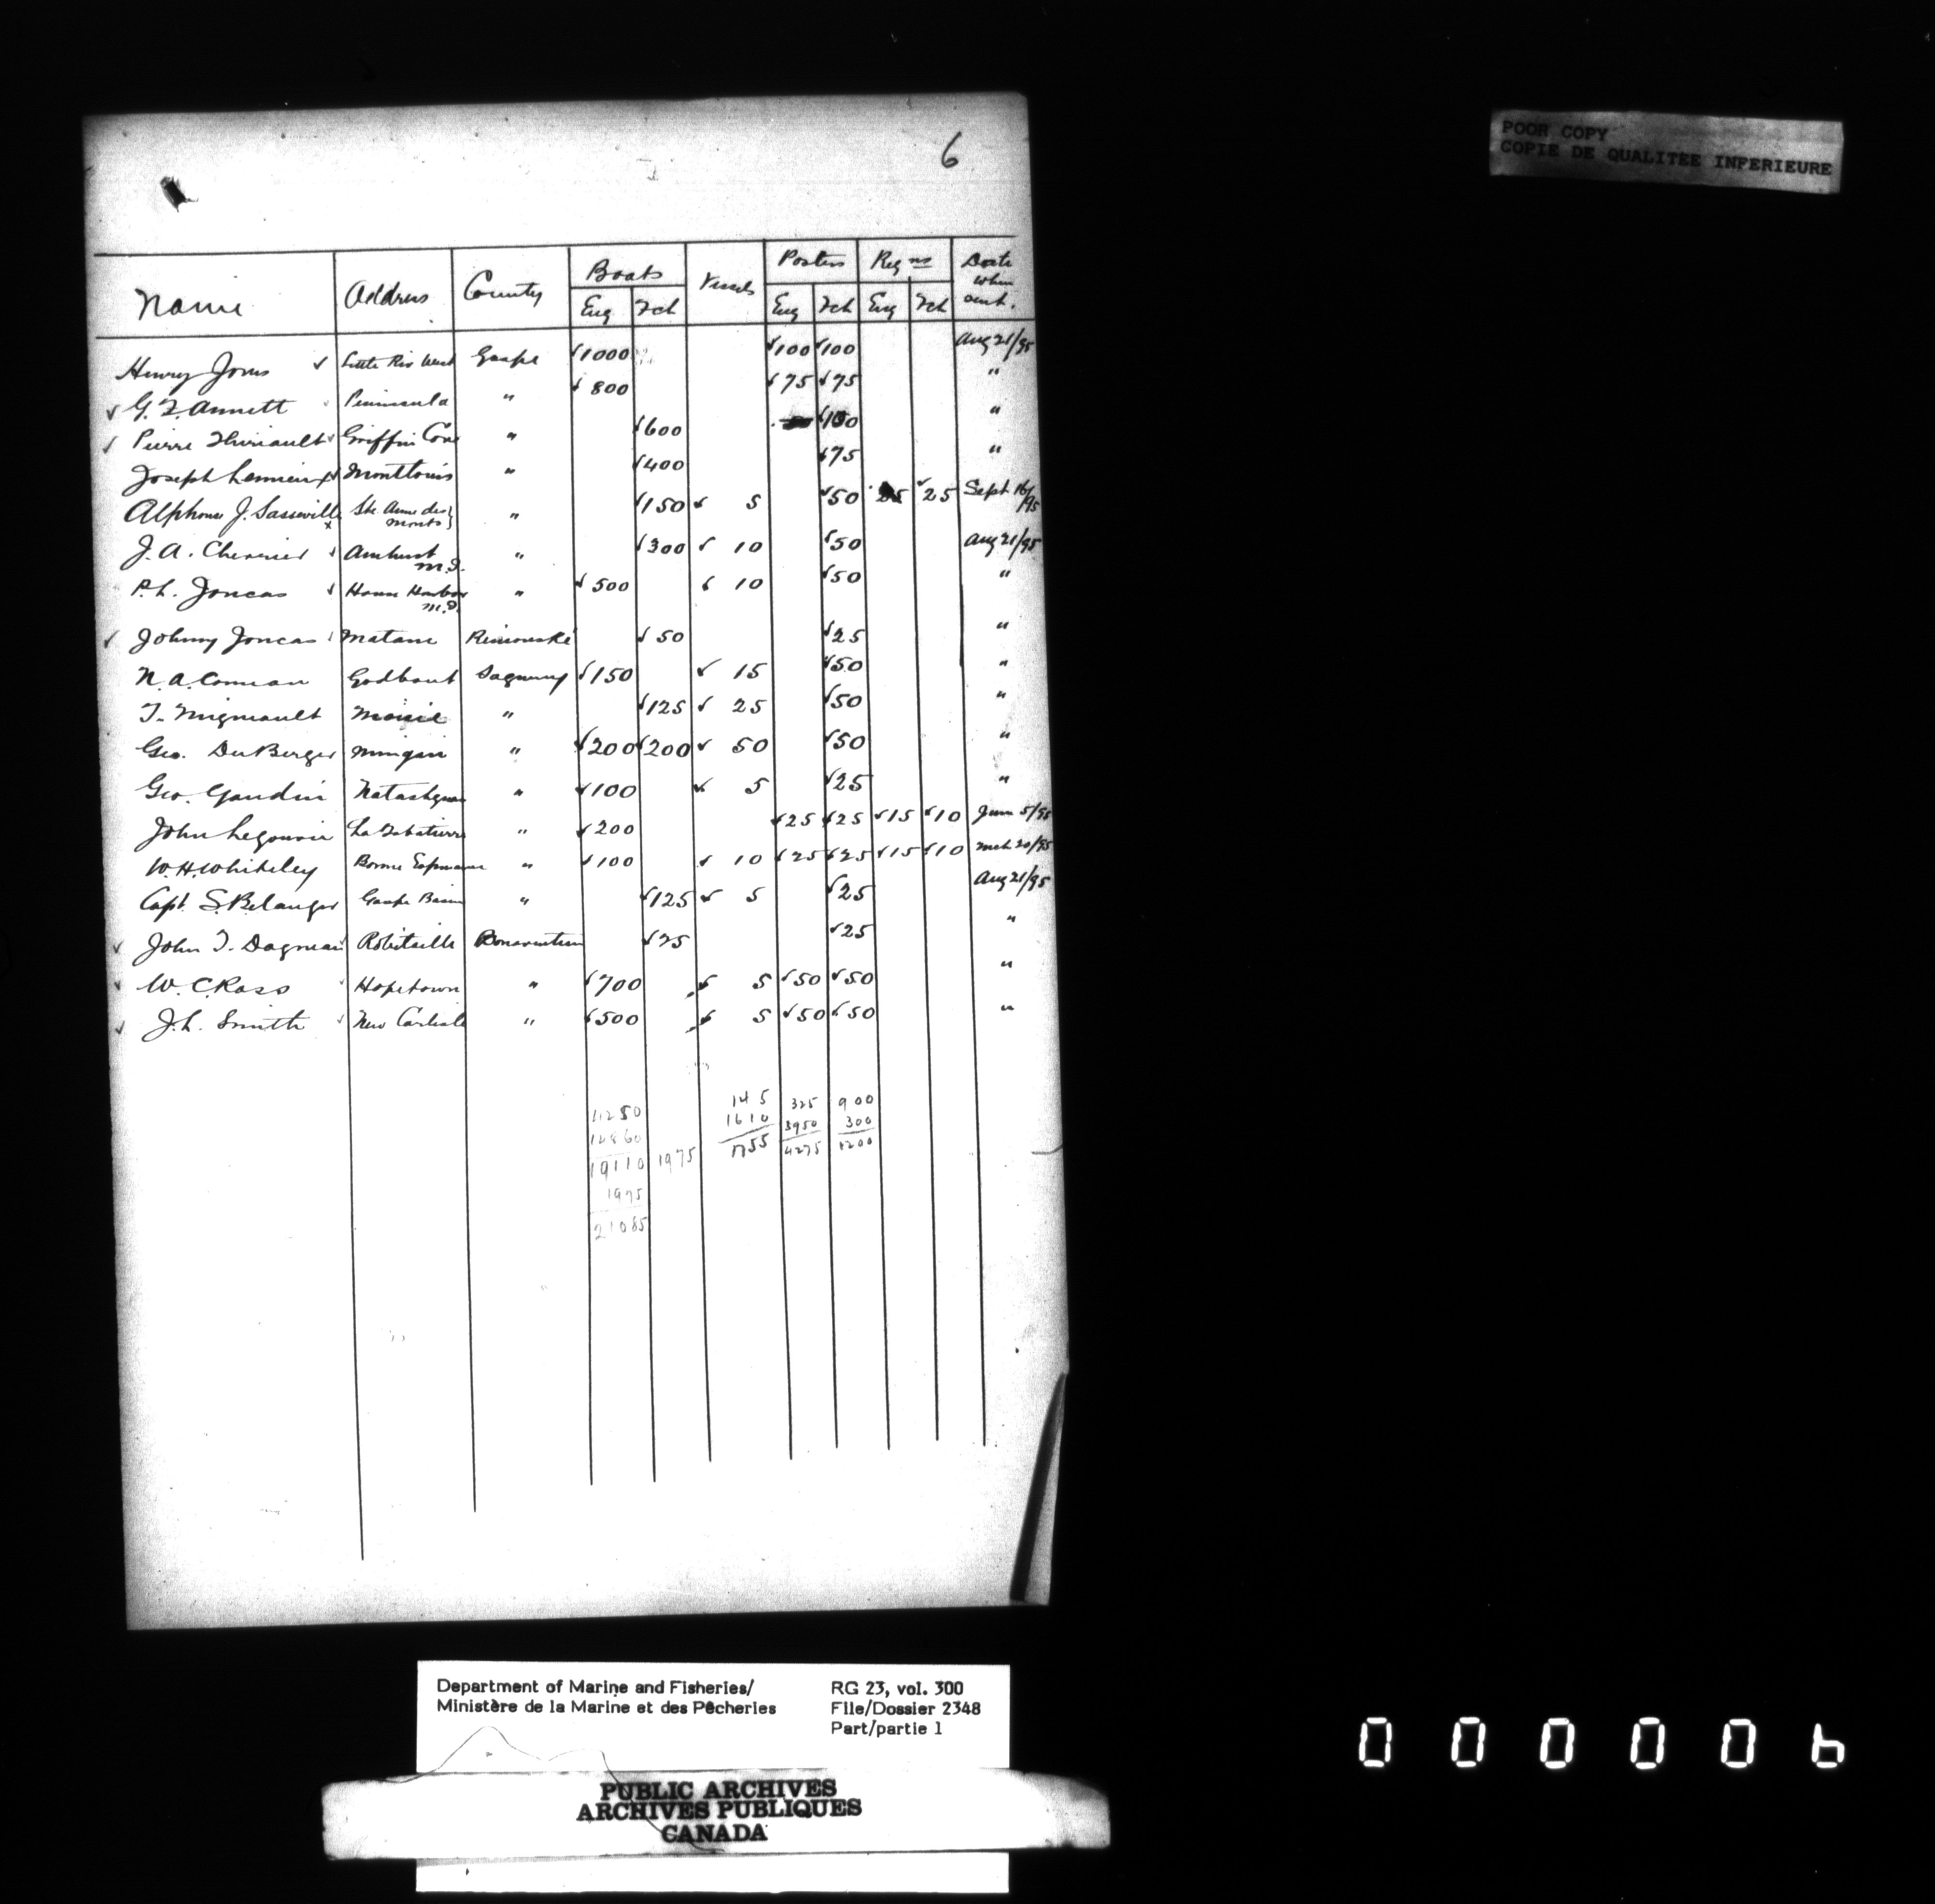 6
Name Address County Boats Vessels Posters Regns Date when sent.
Eng Fch Eng Fch Eng Fch
Henry Jones ✓ Little Riv West Gaspe ✓1000 ✓100 ✓100 Aug 21/95
✓ G. F. Annett Peninsula " ✓800 ✓75 ✓75 "
✓ Pierre Thiriault ✓ Griffin Cove " ✓600 ✓100 "
Joseph Lemieux ✓ Montlouis " ✓400 ✓75 "
Alphonse J. Sasseville x Ste Anne des Monts } " ✓150 ✓ 5 ✓50 25 ✓25 Sept 16/95
J. A. Chevrier ✓ Amherst M.I. " ✓300 ✓ 10 ✓50 Aug 21/95
P. L. Joncas ✓ House Harbor M.I. " ✓500 ✓ 10 ✓50 "
✓ Johnny Joncas ✓ Matane Rimouski ✓50 ✓25 "
N. A. Comeau Godbout Saguenay ✓150 ✓ 15 ✓50 "
T. Migneault Moisie " ✓125 ✓ 25 ✓50 "
Geo. DuBerger Mingan " ✓200 ✓200 ✓ 50 ✓50 "
Geo. Gaudin Natashquan " ✓100 ✓ 5 ✓25 "
John Legouvie La Tabatiere " ✓200 ✓25 ✓25 ✓15 ✓10 June 5/95
W. H. Whiteley Bonne Esperance " ✓100 ✓ 10 ✓25 ✓25 ✓15 ✓10 Mch 20/95
Capt. S. Belanger Gaspe Basin " ✓125 ✓ 5 ✓25 Aug 21/95
✓ John T. Dagneau ✓ Robitaille Bonaventure ✓25 ✓25 "
✓ W. C. Ross ✓ Hopetown " ✓700 ✓ 5 ✓50 ✓50 "
✓ J. L. Smith ✓ New Carlisle " ✓500 ✓ 5 ✓50 ✓50 "
145 325 900
1610 3950 300
19110 1975 1755 4275 1200
1975
21085
POOR COPY
COPIE DE QUALITEE INFERIEURE
Department of Marine and Fisheries/ RG 23, vol. 300
Ministère de la Marine et des Pêcheries File/Dossier 2348
Part/partie 1
PUBLIC ARCHIVES
ARCHIVES PUBLIQUES
CANADA
000006